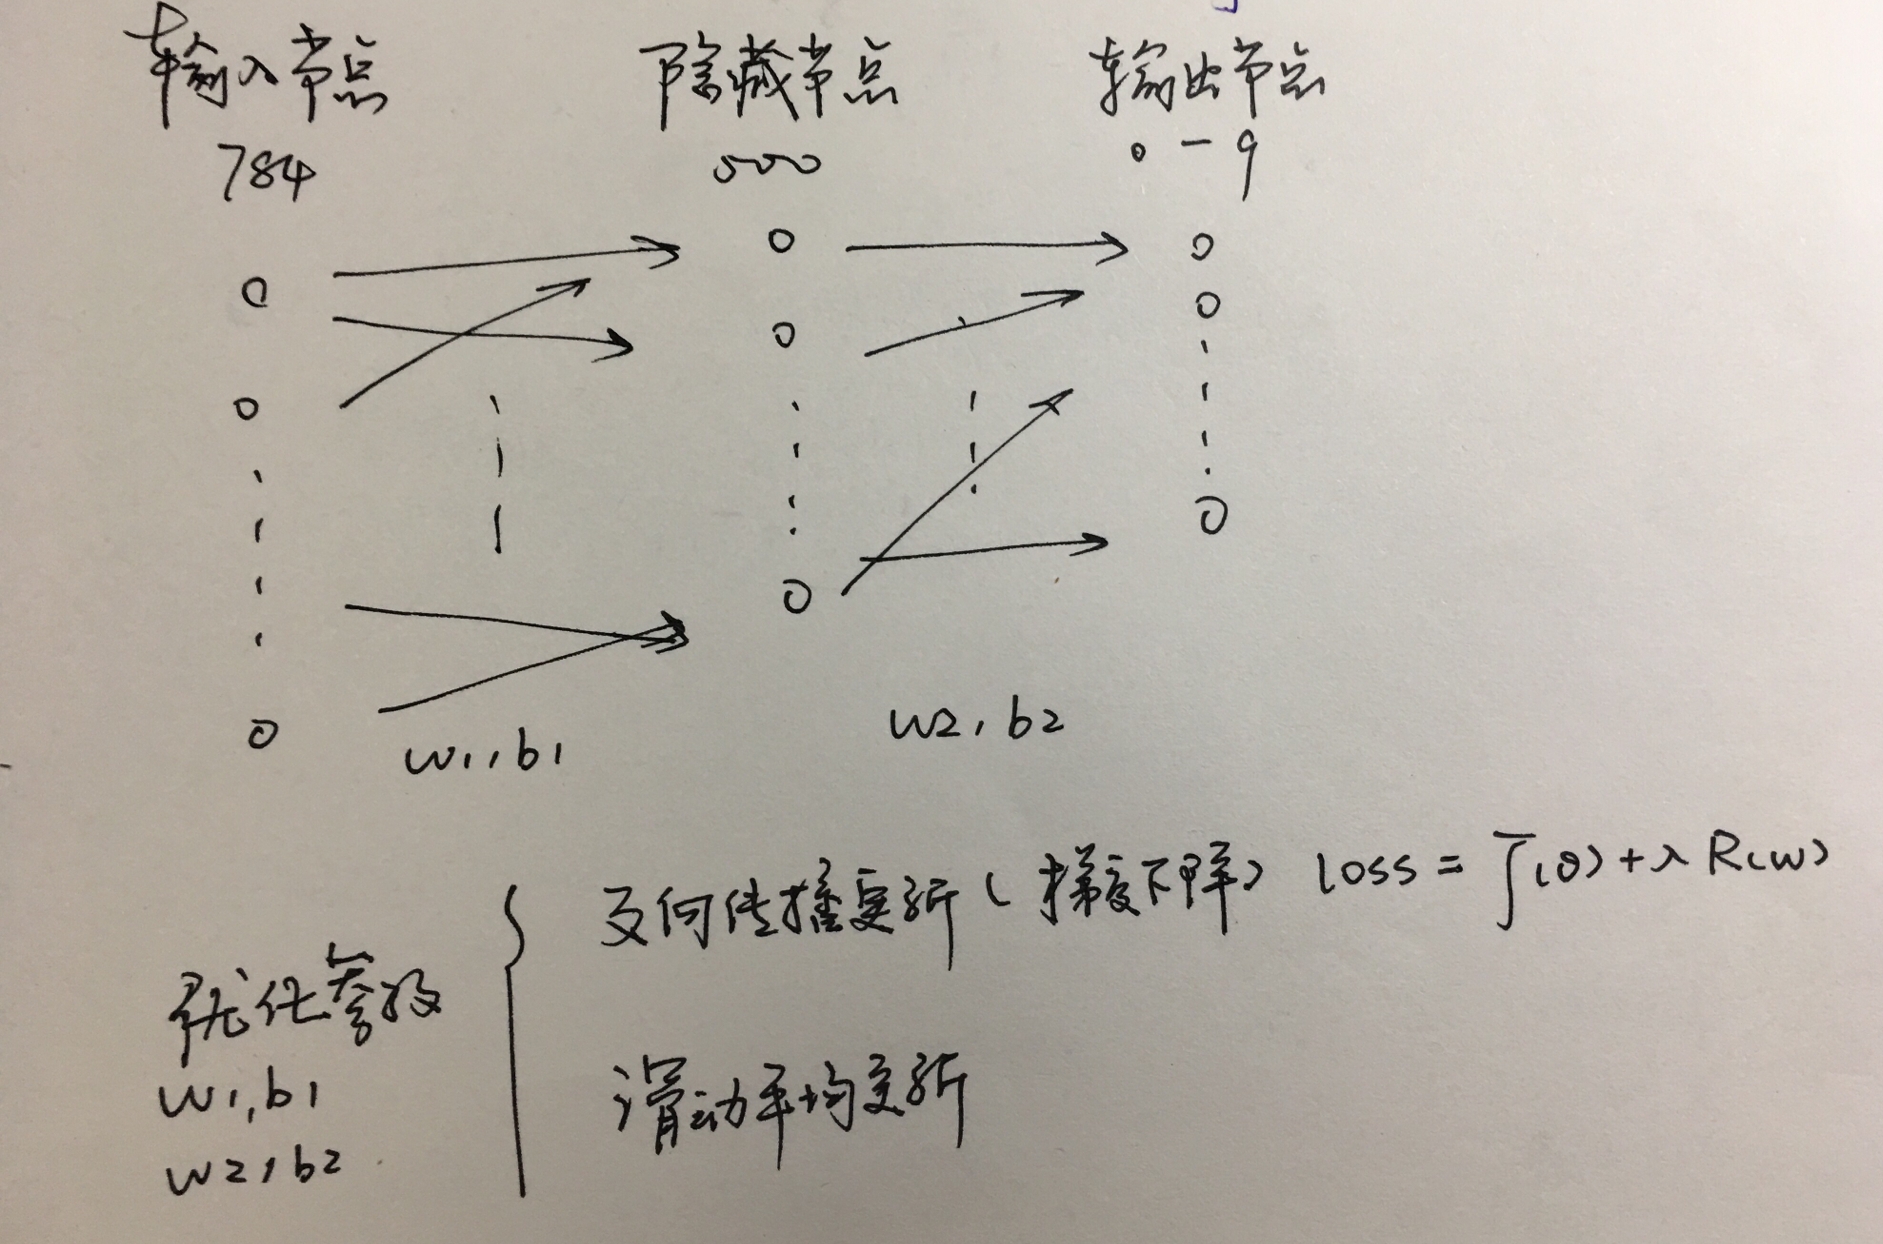 输入节点 隐藏节点 输出节点
784 500 0-9
w1,b1 w2,b2
反向传播更新(梯度下降) loss = J(θ)+λR(w)
优化参数
w1,b1
w2,b2
滑动平均更新